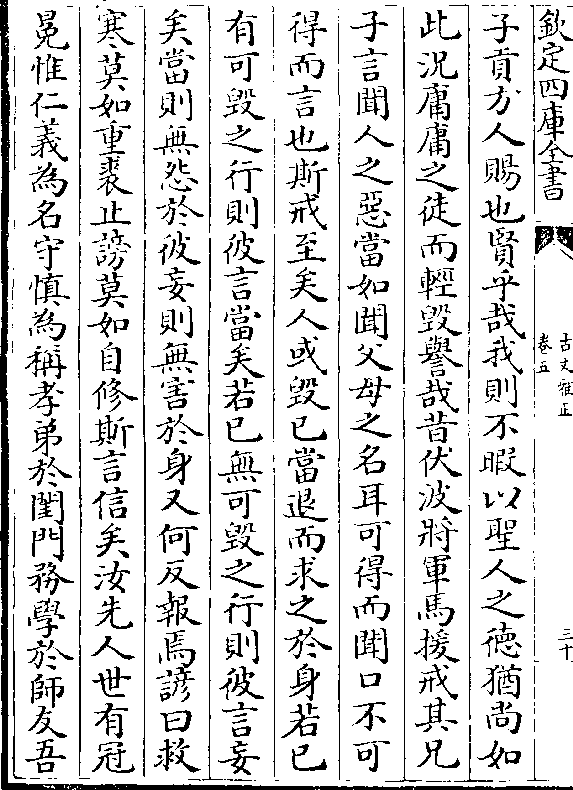 欽定四庫全書
古文雅正
卷五
三十
子貢方人賜也賢乎哉我則不暇以聖人之德猶尚如
此況庸庸之徒而輕毀譽哉昔伏波將軍馬援戒其兄
子言聞人之惡當如聞父母之名耳可得而聞口不可
得而言也斯戒至矣人或毀已當退而求之於身若已
有可毀之行則彼言當矣若已無可毀之行則彼言妄
矣當則無怨於彼妄則無害於身又何反報焉諺曰救
寒莫如重裘止謗莫如自修斯言信矣汝先人世有冠
冕惟仁義為名守慎為稱孝弟於閨門務學於師友吾